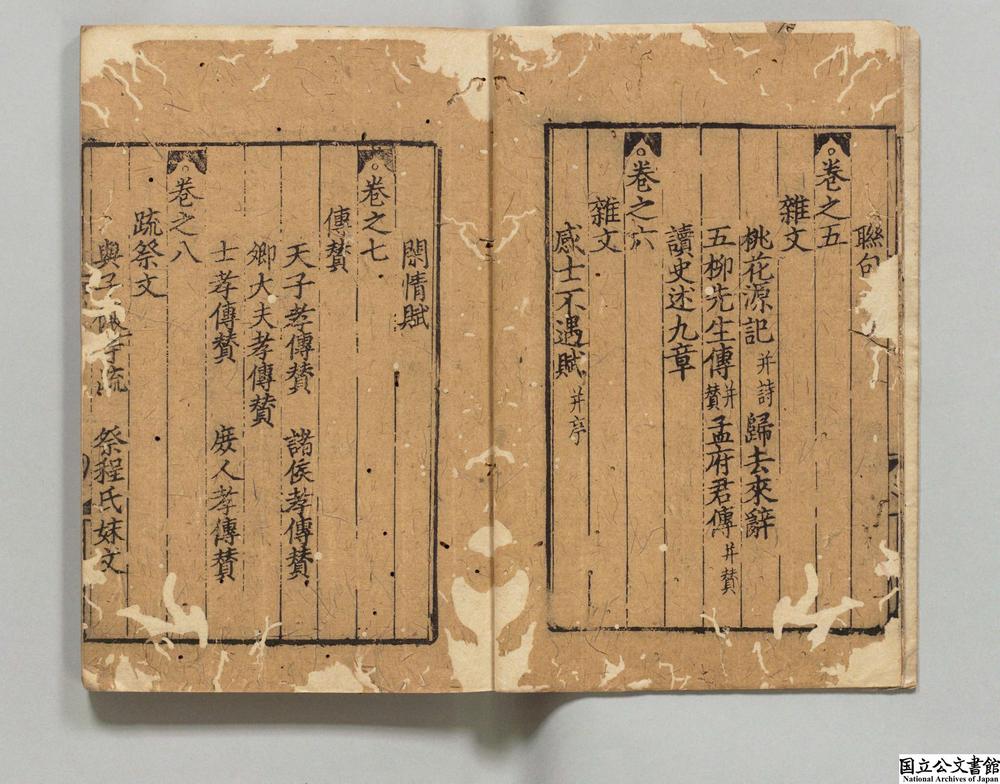 聯句
卷之五
雜文
桃花源記 并詩 歸去來辭
五柳先生傳 并贊 孟府君傳 并贊
讀史述九章
卷之六
雜文
感士不遇賦 并序
閑情賦
卷之七
傳贊
天子孝傳贊 諸侯孝傳贊
卿大夫孝傳贊
士孝傳贊 庻人孝傳贊
卷之八
疏祭文
與子 疏 祭程氏妹文
国立公文書館
National Archives of Japan